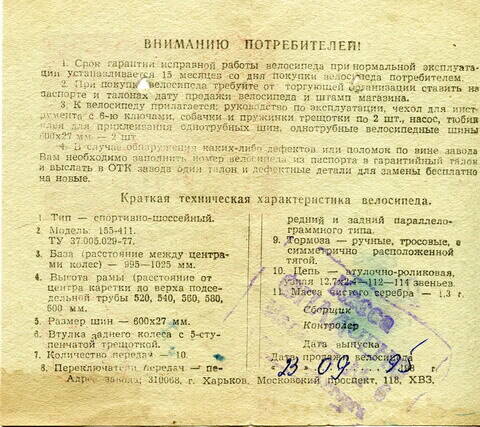 ВНИМАНИЮ ПОТРЕБИТЕЛЕЙ!
1. Срок гарантии исправной работы велосипеда при нормальной эксплуата-
ции устанавливается 15 месяцев со дня покупки велосипеда потребителем.
2. При покупке велосипеда требуйте от торгующей организации ставить на
паспорте и талонах дату продажи велосипеда и штамп магазина.
3. К велосипеду прилагается: руководство по эксплуатации, чехол для инст-
румента с 6-ю ключами, собачки и пружинки трещотки по 2 шт., насос, тюбик
клея для приклеивания однотрубных шин, однотрубные велосипедные шины
600х27 мм — 2 шт.
4. В случае обнаружения каких-либо дефектов или поломок по вине завода
Вам необходимо заполнить номер велосипеда из паспорта в гарантийный талон
и выслать в ОТК завода один талон и дефектные детали для замены бесплатно
на новые.
Краткая техническая характеристика велосипеда.
1. Тип — спортивно-шоссейный.
2. Модель: 155-411.
ТУ 37.005.029-77.
3. База (расстояние между центра-
ми колес) — 995—1025 мм.
4. Высота рамы (расстояние от
центра каретки до верха подсе-
дельной трубы 520, 540, 560, 580,
600 мм.
5. Размер шин — 600х27 мм.
6. Втулка заднего колеса с 5-сту-
пенчатой трещоткой.
7. Количество передач — 10.
8. Переключатели передач — пе-
редний и задний параллело-
граммного типа.
9. Тормоза — ручные, тросовые, с
симметрично расположенной
тягой.
10. Цепь — втулочно-роликовая,
узкая 12,7х2,4—112—114 звеньев.
11. Масса чистого серебра — 1,3 г.
Сборщик
Контролер
Дата выпуска
Дата продажи велосипеда
23 09 95 г
Адрес завода: 310068, г. Харьков, Московский проспект, 118, ХВЗ.